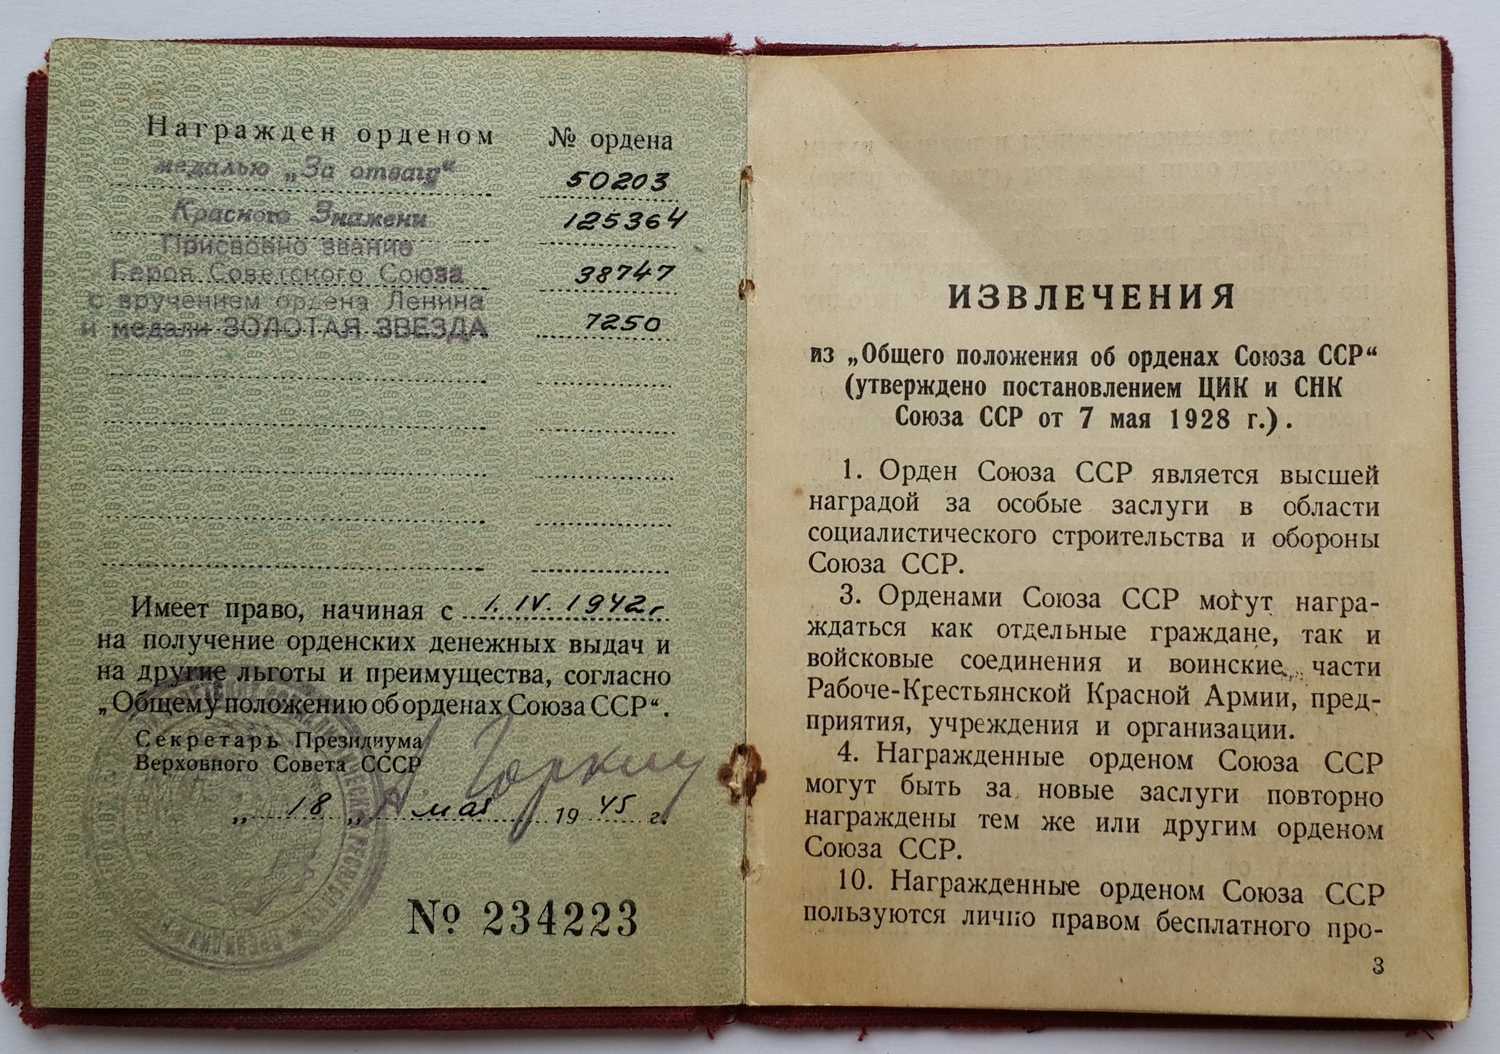 Награжден орденом № ордена
медалью „За отвагу“ 50203
Красного Знамени 125364
Присвоено звание
Героя Советского Союза 38747
с вручением ордена Ленина
и медали ЗОЛОТАЯ ЗВЕЗДА 7250
Имеет право, начиная с 1. IV. 1942 г
на получение орденских денежных выдач и
на другие льготы и преимущества, согласно
„Общему положению об орденах Союза ССР“.
Секретарь Президиума
Верховного Совета СССР
Горкин
„ 18 „ мая 1945 г.
№ 234223
ИЗВЛЕЧЕНИЯ
из „Общего положения об орденах Союза ССР“
(утверждено постановлением ЦИК и СНК
Союза ССР от 7 мая 1928 г.).
1. Орден Союза ССР является высшей
наградой за особые заслуги в области
социалистического строительства и обороны
Союза ССР.
3. Орденами Союза ССР могут награ-
ждаться как отдельные граждане, так и
войсковые соединения и воинские части
Рабоче-Крестьянской Красной Армии, пред-
приятия, учреждения и организации.
4. Награжденные орденом Союза ССР
могут быть за новые заслуги повторно
награждены тем же или другим орденом
Союза ССР.
10. Награжденные орденом Союза ССР
пользуются лично правом бесплатного про-
3